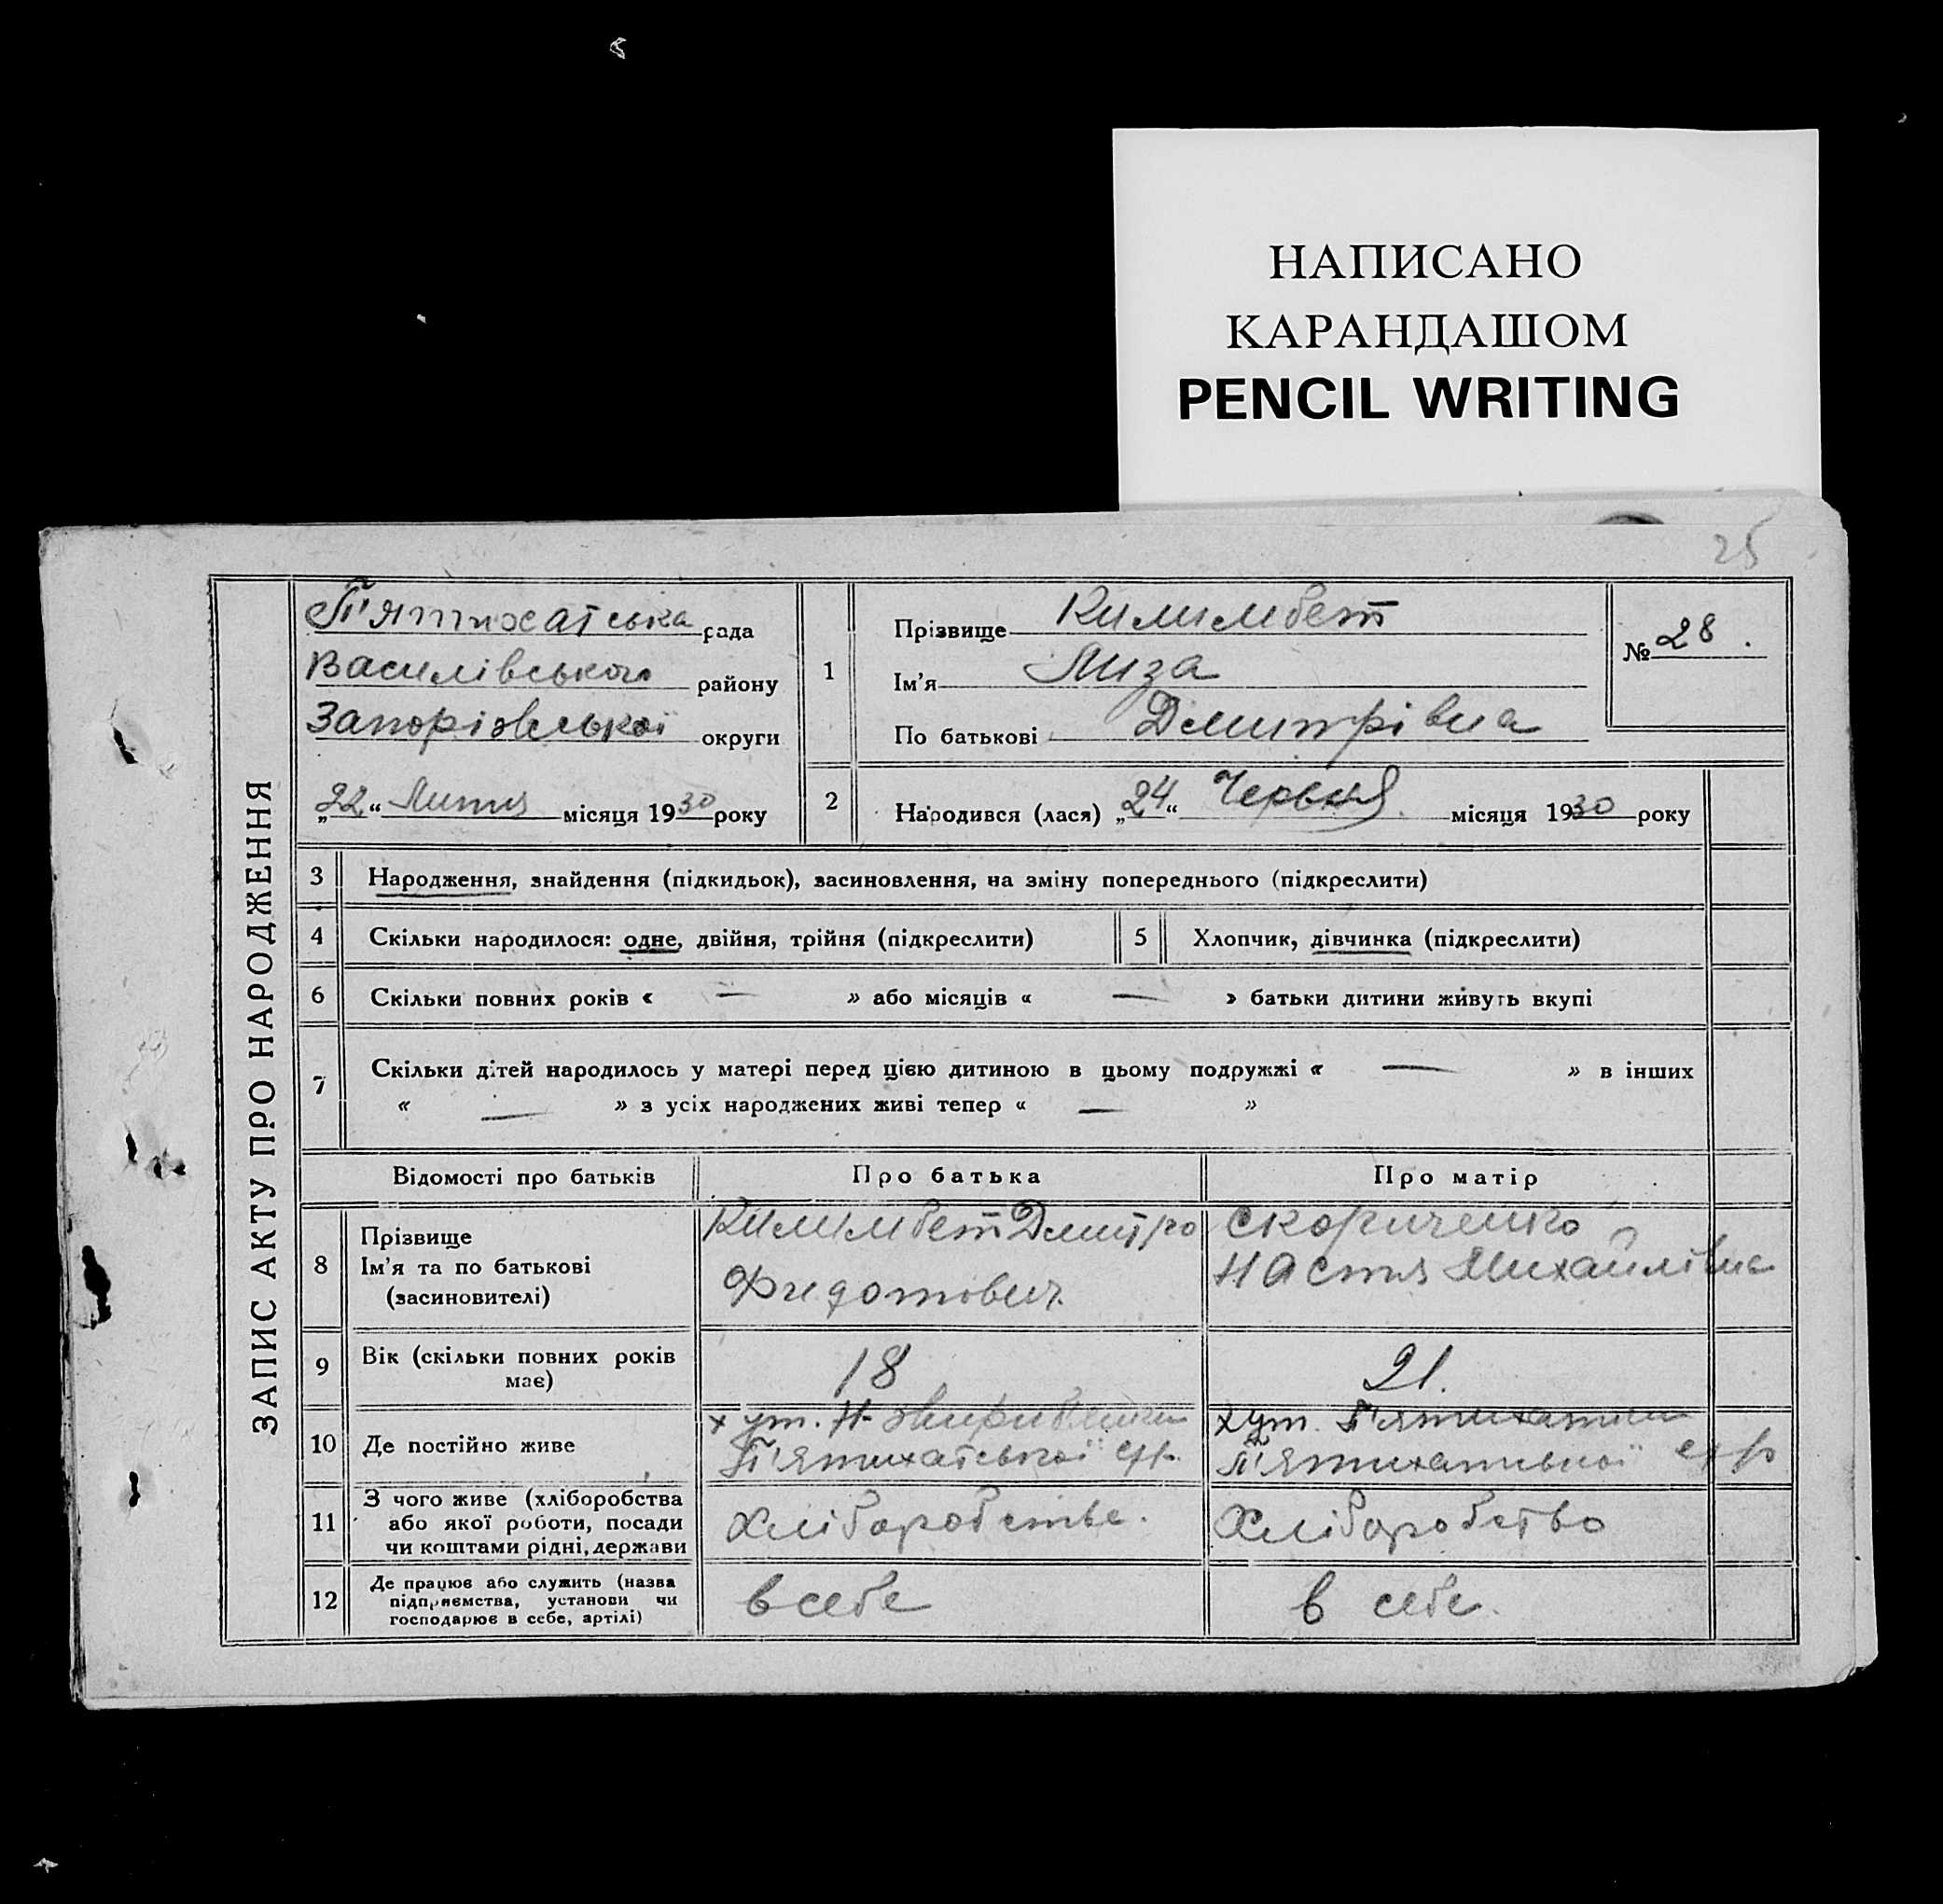 НАПИСАНО
КАРАНДАШОМ
PENCIL WRITING
25
ЗАПИС АКТУ ПРО НАРОДЖЕННЯ
П'ятихатська рада
Василівського району
Запорізської округи
„22“ Липня місяця 1930 року
1
Прізвище Килимбет
Ім'я Лиза
По батькові Дмитрівна
№ 28.
2
Народився (лася) „24“ Червня місяця 1930 року
3 Народження, знайдення (підкидьок), засиновлення, на зміну попереднього (підкреслити)
4 Скільки народилося: одне, двійня, трійня (підкреслити)
5 Хлопчик, дівчинка (підкреслити)
6 Скільки повних років « — » або місяців « — » батьки дитини живуть вкупі
7 Скільки дітей народилось у матері перед цією дитиною в цьому подружжі « — » в інших
« — » з усіх народжених живі тепер « — »
Відомості про батьків Про батька Про матір
8 Прізвище
Ім'я та по батькові
(засновителі)
Килимбет Дмитро
Фидотович
Скориченко
Настя Михайлівна
9 Вік (скільки повних років
має)
18
21.
10 Де постійно живе
хут. Н-
П'ятихатської с/р.
хут. П'ятихатки
П'ятихатської с/р
11 З чого живе (хліборобства
або якої роботи, посади
чи коштами рідні, держави
Хліборобство.
Хліборобство
12 Де працює або служить (назва
підприємства, установи чи
господарює в себе, артілі)
в себе
в себе.